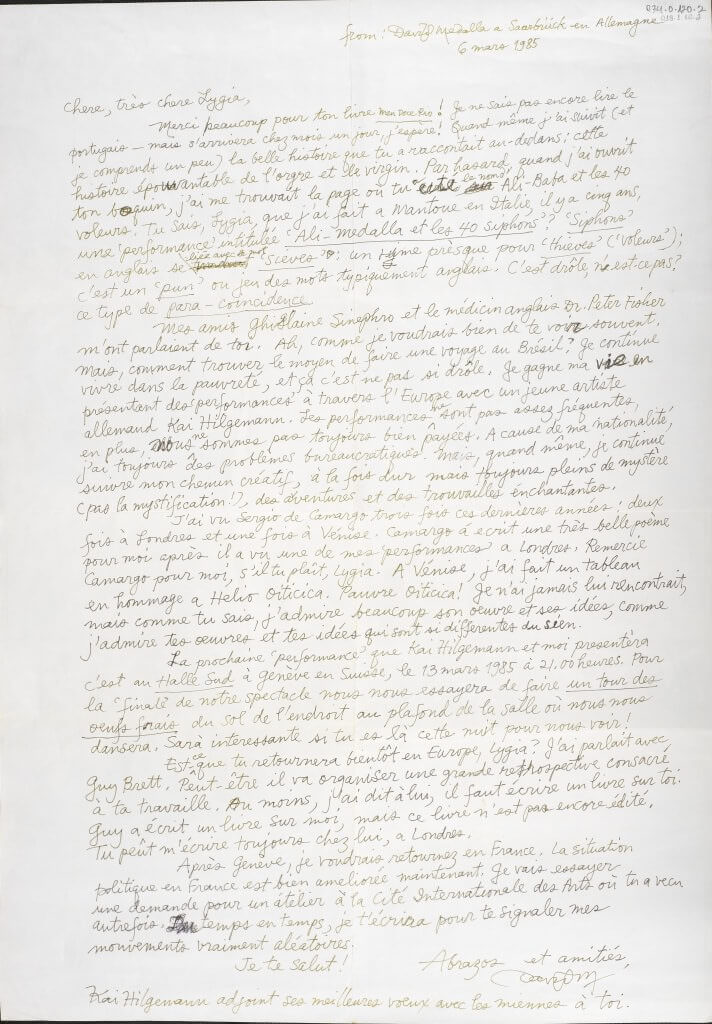 074.0-120-2
018.1.10.2
from: David Medalla a Saarbrück en Allemagne
6 mars 1985
Chere, très chere Lygia,
Merci beaucoup pour ton livre Meu Doce Rio! Je ne sais pas encore lire le
portugais — mais s'arrivera chez mois un jour, j'espère! Quand même j'ai suivit (et
je comprends un peu) la belle histoire que tu a raccontait au-dedans: cette
histoire épouvantable de l'orgre et le virgin. Par hasard, quand j'ai ouvrit
ton boquin, j'ai me trouvait la page où tu cite le nom Ali-Baba et les 40
voleurs. Tu sais, Lygia, que j'ai fait a Mantoue en Italie, il y a cinq ans,
une 'performance' intitulée 'Ali-Medalla et les 40 Siphons'? 'Siphons'
en anglais se lire avec le mot 'Sieves': un ryme prèsque pour 'thieves' ('voleurs');
c'est un 'pun' ou jeu des mots typiquement anglais. C'est drôle, n'est-ce pas?
ce type de para-coïncidence.
Mes amis Ghislaine Sinephro et le médicin anglais Dr. Peter Fisher
m'ont parlaient de toi. Ah, comme je voudrais bien de te voir souvent.
Mais, comment trouver le moyen de faire une voyage au Brésil? Je continue
vivre dans la pauvreté, et ça c'est ne pas si drôle. Je gagne ma vie en
présentant des 'performances' à travers l'Europe avec un jeune artiste
allemand Kai Hilgemann. Les performances ne sont pas assez fréquentes,
en plus, nous ne sommes pas toujours bien payées. A cause de ma nationalité,
j'ai toujours des problèmes bureaucratiques. Mais, quand même, je continue
suivre mon chemin créatif, à la fois dur mais toujours pleins de mystère
(pas la mystification!), des aventures et des trouvailles enchantantes.
J'ai vu Sergio de Camargo trois fois ces dernières années: deux
fois à Londres et une fois à Vénise. Camargo á ecrit une très belle poème
pour moi après il a vu une de mes 'performances' a Londres. Remercie
Camargo pour moi, s'il tu plaît, Lygia. A Vénise, j'ai fait un tableau
en hommage a Helio Oiticica. Pauvre Oiticica! Je n'ai jamais lui rencontrait,
mais comme tu sais, j'admire beaucoup son œuvre et ses idées, comme
j'admire tes œuvres et tes idées qui sont si differentes du sien.
La prochaine 'performance' que Kai Hilgemann et moi presentèra
c'est au Halle Sud à genève en Suisse, le 13 mars 1985 à 21.00 heures. Pour
la 'finale' de notre spectacle nous nous essayera de faire un tour des
oeufs frais du sol de l'endroit au plafond de la salle où nous nous
dansera. Sarà interessante si tu es là cette nuit pour nous voir!
Est-ce que tu retournera bientôt en Europe, Lygia? J'ai parlait avec
Guy Brett. Peut-être il va organiser une grande retrospective consacré
à ta travaille. Au moins, j'ai dit à lui, il faut écrire un livre sur toi.
Guy a écrit un livre sur moi, mais ce livre n'est pas encore édité.
Tu peût m'écrire toujours chez lui, a Londres.
Après Genève, je voudrais retournez en France. La situation
politique en France est bien ameliorée maintenant. Je vais essayer
une demande pour un atélier à la Cité Internationale des Arts où tu a vecu
autrefois. temps en temps, je t'écrira pour te signaler mes
mouvements vraiment aléatoires.
Je te salut!
Abrazos et amitiés,
David M
Kai Hilgemann adjoint ses meilleures voeux avec les miennes à toi.